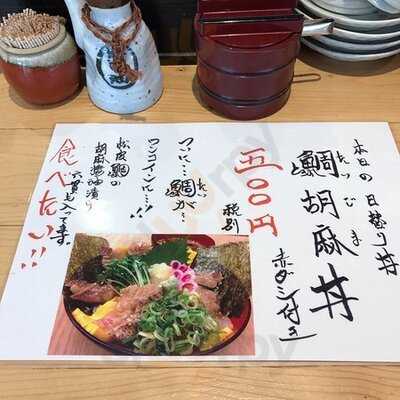 本日の日替り丼
鯛胡麻丼
たい ごま
赤ダシ付き
五〇〇円
税別
ついに…鯛が…
たい
ワンコインに…!!
松皮鯛の
胡麻醤油漬け
六貫も入ってます。
食べたい!!